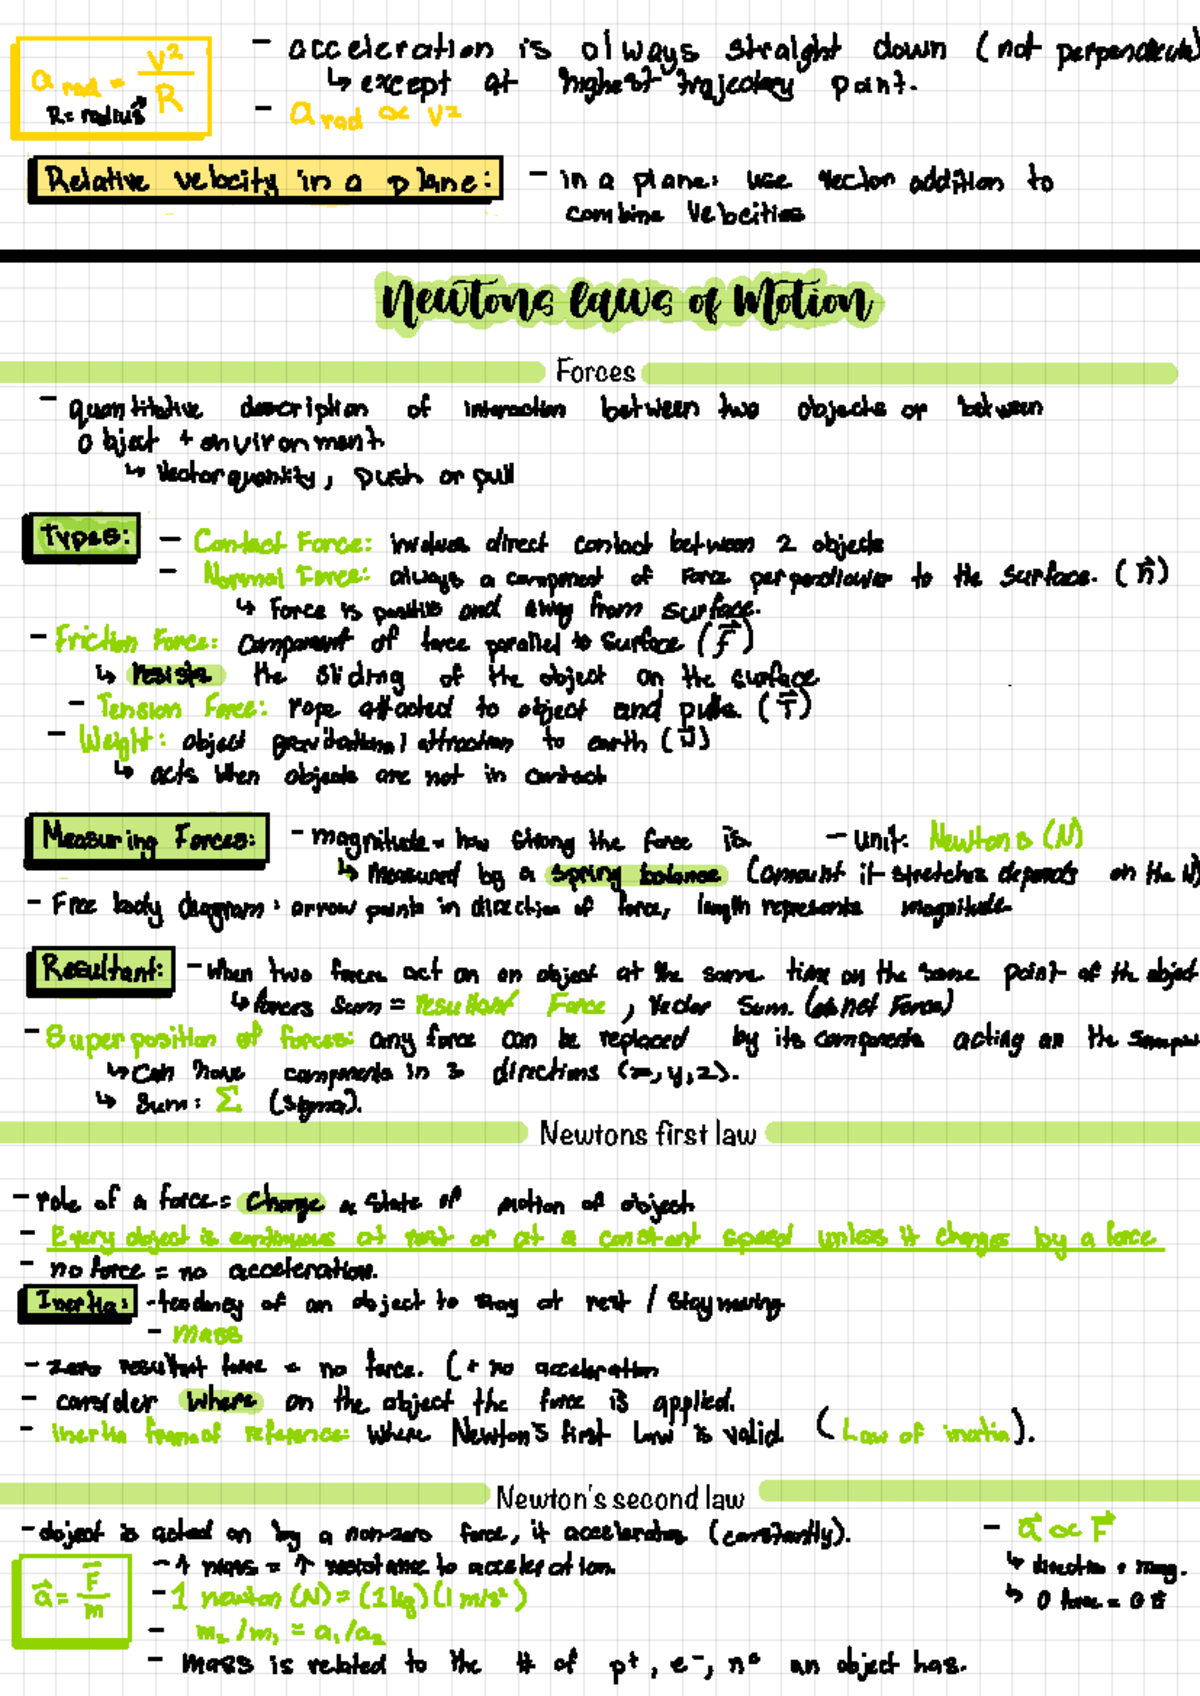 a rad = v²/R
R = radius
- acceleration is always straight down (not perpendicular)
↳ except at highest trajectory point.
- a rad ∝ v²
Relative velocity in a plane:
- in a plane: use vector addition to
combine velocities
Newtons laws of Motion
Forces
- quantitative description of interaction between two objects or between
object + environment
↳ Vector quantity, push or pull
Types:
- Contact Force: involves direct contact between 2 objects
- Normal Force: always a component of force perpendicular to the surface. (n⃗)
↳ Force is positive and away from surface.
- Friction Force: component of force parallel to surface (f⃗)
↳ resists the sliding of the object on the surface
- Tension Force: rope attached to object and pulls. (T⃗)
- Weight: object gravitational attraction to earth (w⃗)
↳ acts when objects are not in contact
Measuring Forces:
- magnitude = how strong the force is.
- unit: Newtons (N)
↳ Measured by a spring balance (amount it stretches depends on the N)
- Free body diagram: arrow points in direction of force, length represents magnitude.
Resultant:
- When two forces act on an object at the same time on the same point of the object
↳ forces sum = resultant Force, vector sum. (or net Force)
- Superposition of forces: any force can be replaced by its components acting on the same
↳ Can have components in 3 directions (x, y, z).
↳ Sum: Σ (sigma).
Newtons first law
- role of a force = change a state of motion of object
- Every object is continuous at rest or at a constant speed unless it changes by a force
- no force = no acceleration.
Inertia:
- tendency of an object to stay at rest / stay moving
- mass
- zero resultant force = no force. (+ no acceleration
- consider where on the object the force is applied.
- inertia frame of reference: where Newton's first law is valid. (Law of inertia).
Newton's second law
- object is acted on by a non-zero force, it accelerates (constantly).
- a⃗ ∝ F⃗
↳ direction + mag.
↳ 0 force = 0 a⃗
a⃗ = F⃗/m
- ↑ mass = ↑ resistance to acceleration.
- 1 newton (N) = (1 kg)(1 m/s²)
- m₂/m₁ = a₁/a₂
- mass is related to the # of p⁺, e⁻, n⁰ an object has.